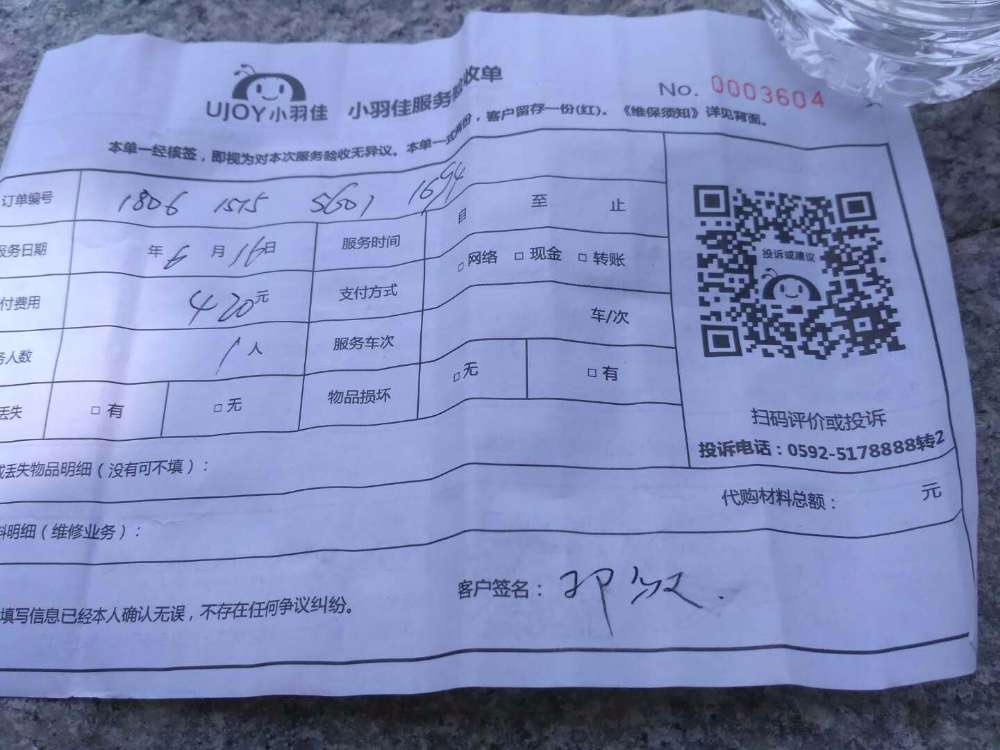 UJOY小羽佳 小羽佳服务验收单 No. 0003604
本单一经核签，即视为对本次服务验收无异议。本单一式两份，客户留存一份(红)。《维保须知》详见背面。
订单编号 1806 1515 5601 1694
服务日期 年6月16日 服务时间 自 至 止
付费用 420元 支付方式 □网络 □现金 □转账
务人数 1人 服务车次 车/次
丢失 □有 □无 物品损坏 □无 □有
投诉或建议
扫码评价或投诉
投诉电话：0592-5178888转2
或丢失物品明细（没有可不填）：
代购材料总额： 元
料明细（维修业务）：
填写信息已经本人确认无误，不存在任何争议纠纷。
客户签名：